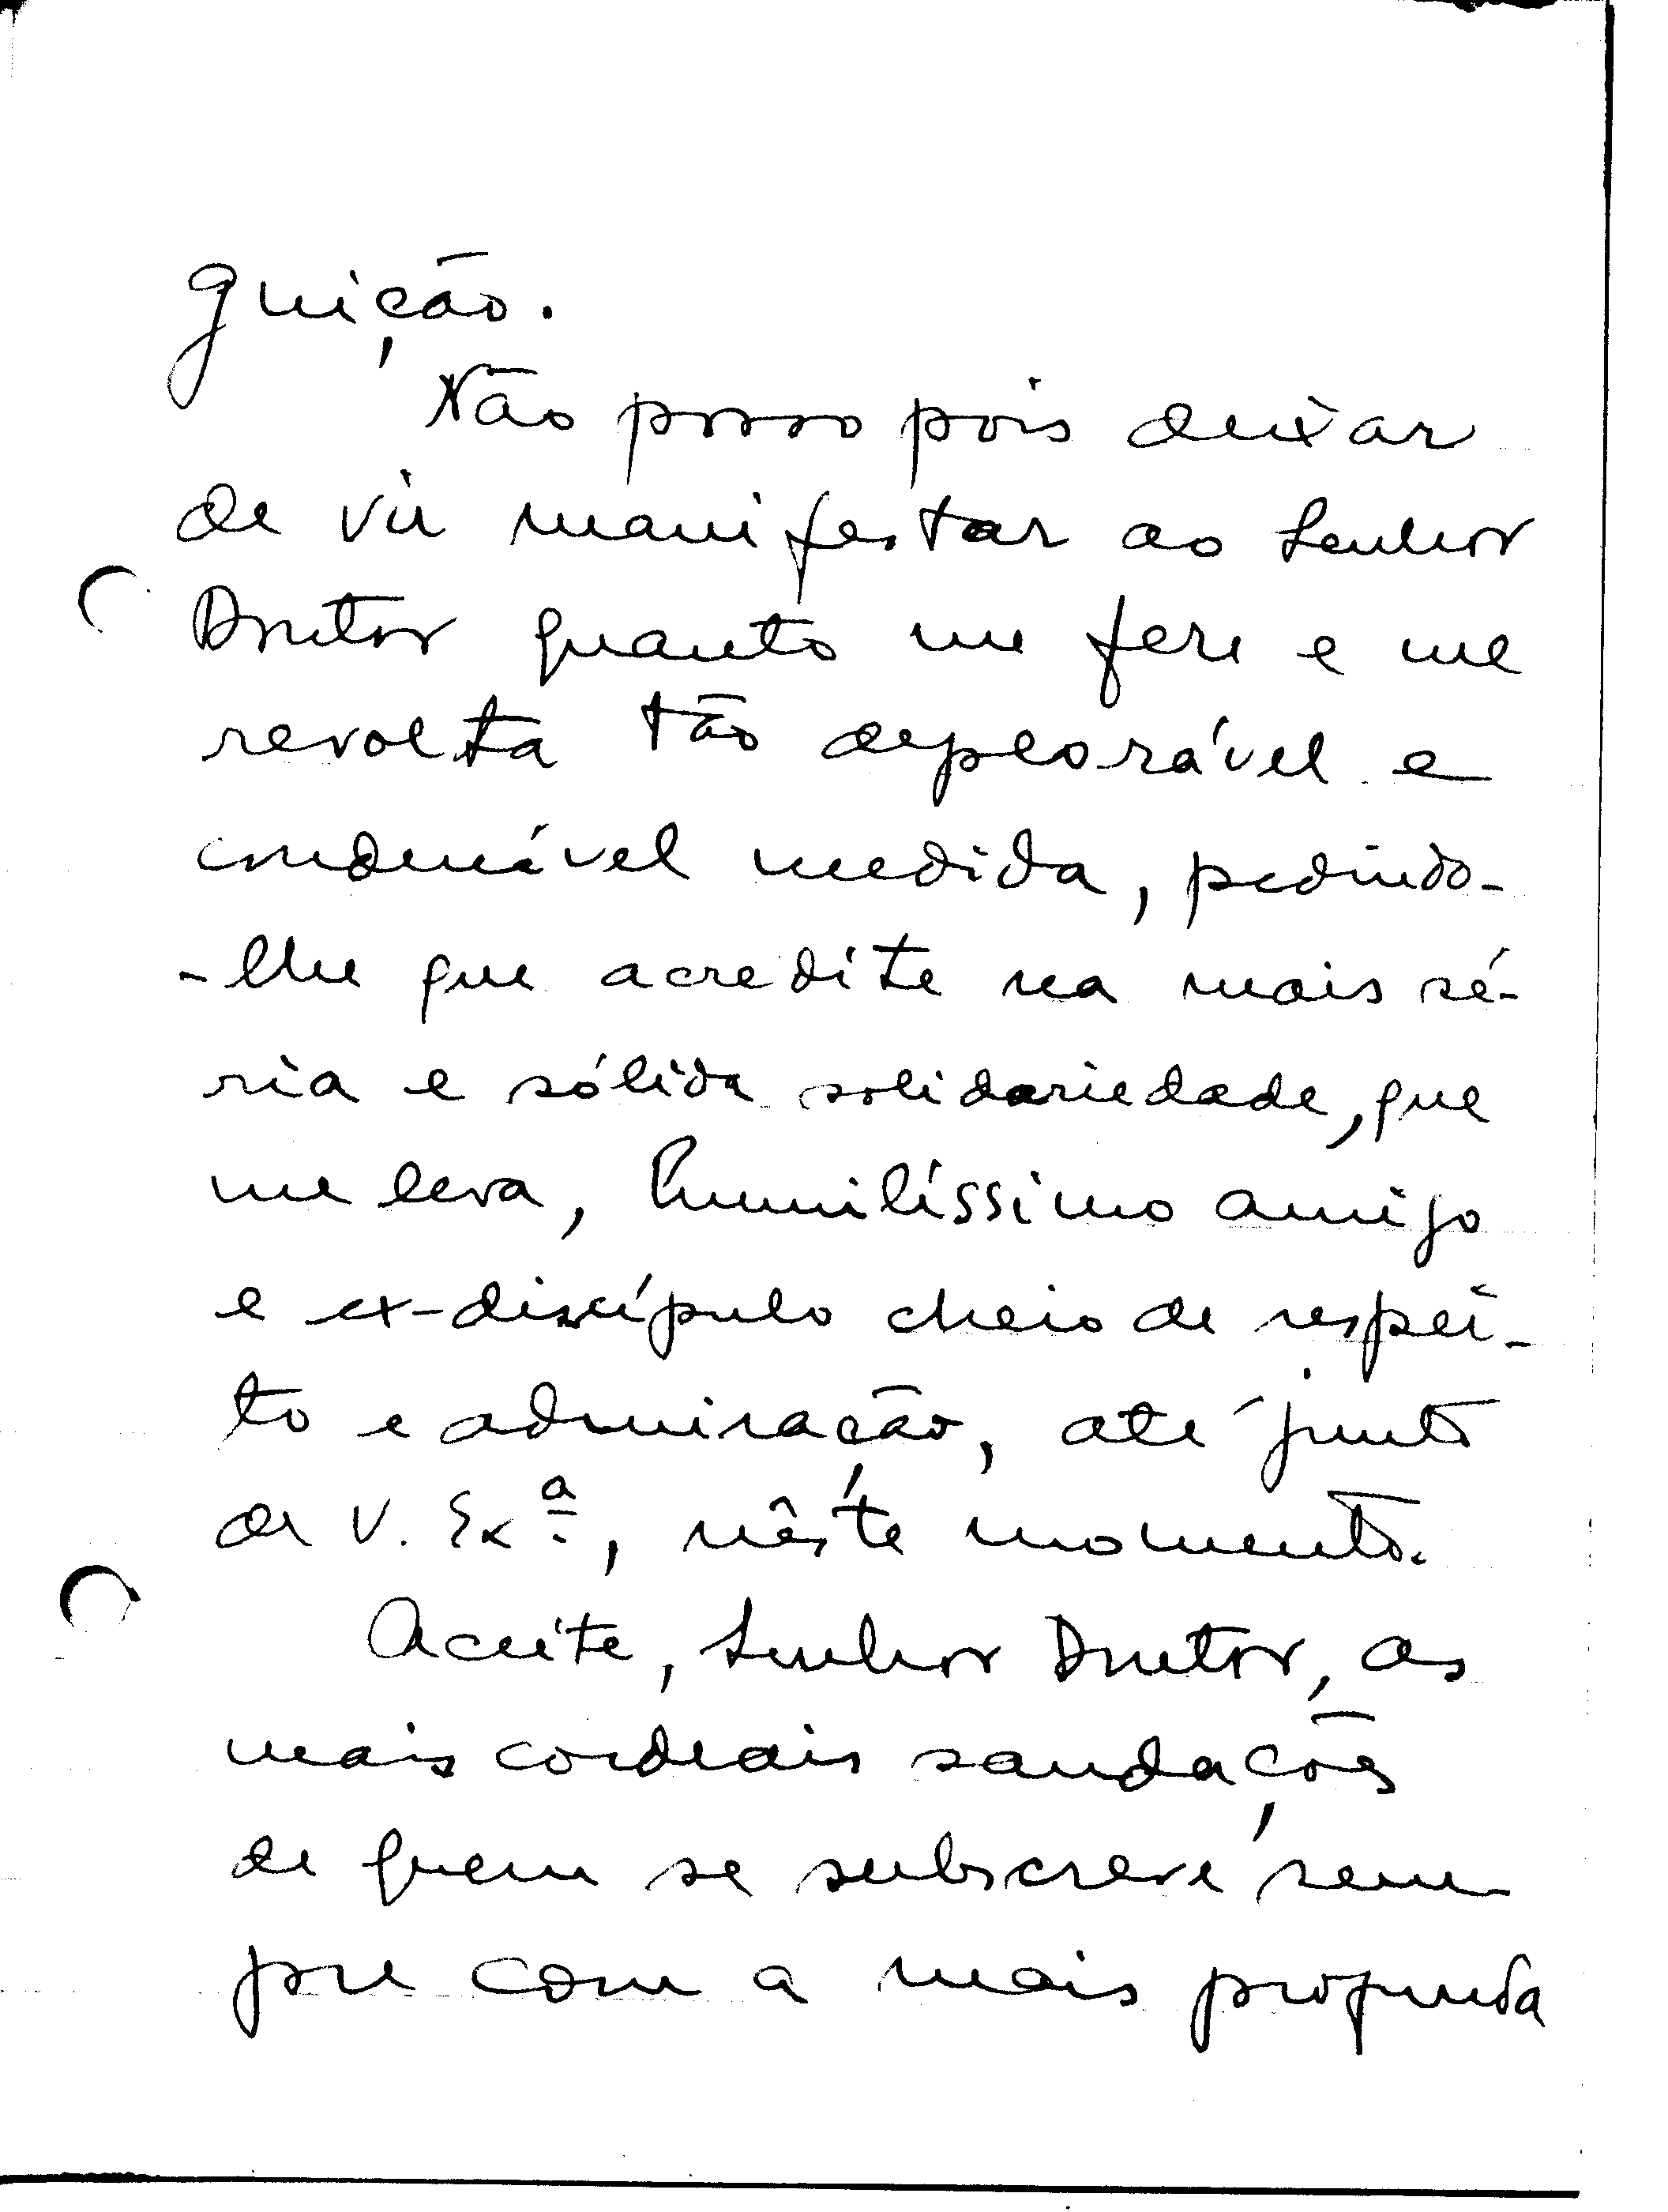 guição.
Não posso pois deixar
de vir manifestar ao Senhor
Doutor quanto me fere e me
revolta tão deplorável e
condenável medida, pedindo-
-lhe que acredite na mais sé-
ria e sólida solidariedade, que
me leva, humilíssimo amigo
e ex-discípulo cheio de respei-
to e admiração, até junto
de V. Exª, nêste momento.
Aceite, Senhor Doutor, as
mais cordeais saudações
de quem se subscreve sem-
pre com a mais profunda